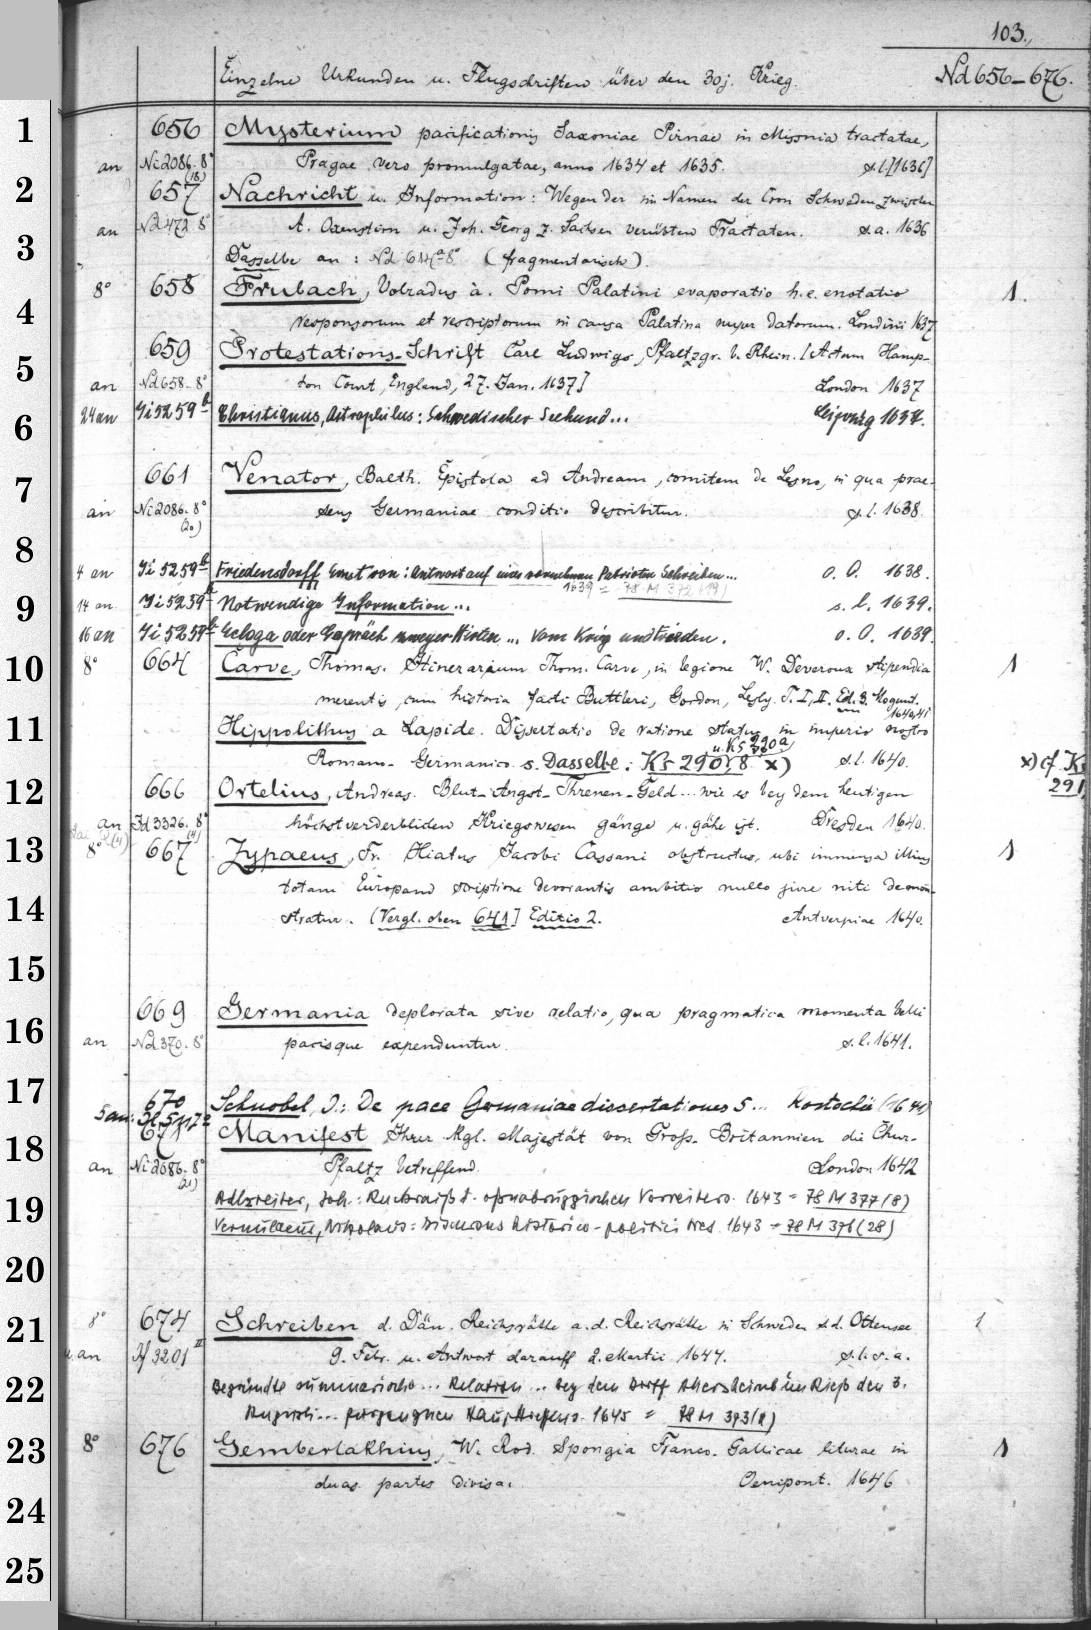 103.
Einzelne Urkunden u. Flugschriften über den 30j. Krieg. Nd 656–676.
1 656 Mysterium pacificationis Saxoniae Pirnae in Misnia tractatae,
an Ni 2086. 8° (18) Pragae vero promulgatae, anno 1634 et 1635. s.l. [1636]
2 657 Nachricht u. Information: Wegen der im Namen der Cron Schweden zwischen
an Nd 472 8° A. Oxenstirn u. Joh. Georg z. Sachsen verübten Tractaten. s.a. 1636
3 Dasselbe an: Nd 614a 8° (fragmentarisch).
8° 658 Frubach, Volradus à. Pomi Palatini evaporatio h.e. enotatio 1.
4 responsorum et rescriptorum in causa Palatina nuper datorum. Londini 1637
659 Protestations-Schrift Carl Ludwigs, Pfaltzgr. b. Rhein. [Actum Hamp-
5 an Nd 658. 8° ton Court, England, 27. Jan. 1637] London 1637
6 24 an Ji 5259 b Christianus, Astrophilus: Schwedischer Seehund... Leipzig 1637.
7 661 Venator, Balth. Epistola ad Andream, comitem de Lesno, in qua prae-
an Ni 2086. 8° (20) sens Germaniae conditio describitur. s.l. 1638.
8
4 an Ji 5259 b Friedensdorff, Ernst von: Antwort auf eines vornehmen Patrioten Schreiben... o. O. 1638.
1639 = 78 M 372 (19)
9 14 an Ji 5259 b Notwendige Information ... s. l. 1639.
16 an Ji 5259 b Ecloga oder Gespräch zweyer Hirten ... vom Krieg und Frieden. o. O. 1639.
10 8° 664 Carve, Thomas. Itinerarium Thom. Carve, in legione W. Deveroux stipendia 1
merentis, cum historia facti Buttleri, Gordon, Lesly. T. I, II. Ed. 3. Mogunt. 1640,41
11 Hippolithus a Lapide. Dissertatio de ratione status in imperio nostro
Romano-Germanico s. Dasselbe: Ks 290 8° x) s.l. 1640. x) cf. Ks
u. Ks 290a
291
12 666 Ortelius, Andreas. Blut-Angst-Threnen-Geld... wie es bey dem heutigen
an Jd 3326. 8° (4) höchstverderblichen Kriegswesen gänge u. gäbe ist. Dresden 1640.
13 8° 667 Zypaeus, Fr. Hiatus Jacobi Cassani obstructus, ubi immensa illius 1
totam Europam scriptione devorantis ambitio nullo jure niti demon-
14 stratur. [Vergl. oben 641] Editio 2. Antverpiae 1640.
15
669 Germania deplorata sive relatio, qua pragmatica momenta belli
16 an Nd 370. 8° pacisque expenduntur. s.l. 1641.
17 670 Schnobel, J.: De pace Germaniae dissertationes 5... Rostochii (1641)
5 an:
671 Manifest Ihrer Kgl. Majestät von Groß-Britannien die Chur-
18 an Ni 2086. 8° (21) Pfaltz betreffend. London 1642
19 Adlzreiter, Joh.: 1643 = 78 M 377 (8)
Vernulaeus, Nikolaus: Discursus historico-politici tres. 1643 = 78 M 376 (28)
20
21 8° 674 Schreiben d. Dän. Reichsräthe a.d. Reichsräthe in Schweden s.d. Ottensee 1
u. an Jf 3201 II 9. Febr. u. Antwort darauff 2. Martii 1644. s.l.e.a.
22 Begründte summarische ... Relation ... bey dem Dorff Allersheimb im Rieß den 3.
Augusti... Haupttreffens. 1645 = 78 M 393 (2)
23 8° 676 Gemberlakhius, W. Rod. Spongia Franco-Gallicae liturae in 1
duas partes divisa. Oenipont. 1646
24
25